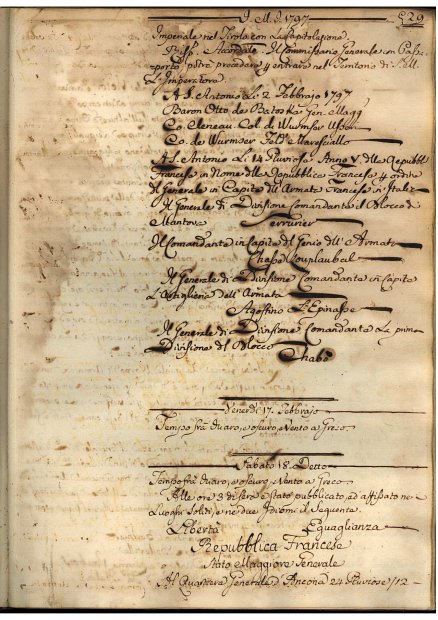 J. M. J. 1797.
Imperiale nel Tirolo con La Capitolazione.
Risp. Accordato. Il Commissario Generale con Passa-
porto potrà procedere, ed entrare nel Territorio di
L'Imperatore.
A S. Antonio Li 2 Febbrajo 1797
Baron Otto de Gen. Magg.
Co. Col. di Wurmser
Co. de Wurmser Feld Maresciallo
A S. Antonio Li 14 Piovoso Anno V. della Repubbl.
Francese in Nome della Repubblica Francese, ed ordine
del Generale in Capite dell'Armata Francese in Italia
Il Generale di Divisione Comandante il Blocco di
Mantova Serrurier
Il Comandante in Capite del Genio dell'Armata
Chasseloup
Il Generale di Divisione Comandante in Capite
L'Artiglieria dell'Armata
Agostino L'Epinasse
Il Generale di Divisione Comandante La prima
Divisione del Blocco
Chabò
Venerdì 17. Febbrajo
Tempo frà chiaro, e oscuro, Vento a Greco.
Sabato 18. Detto
Tempo frà chiaro, e oscuro, Vento a Greco.
Alle ore 3 di sera è stato pubblicato, ed affissato ne
Luoghi Soliti, il Sequente.
Libertà Eguaglianza
Repubblica Francese
Stato Maggiore Generale
Al Quartiere Generale, Ancona 24 Pluviose /12